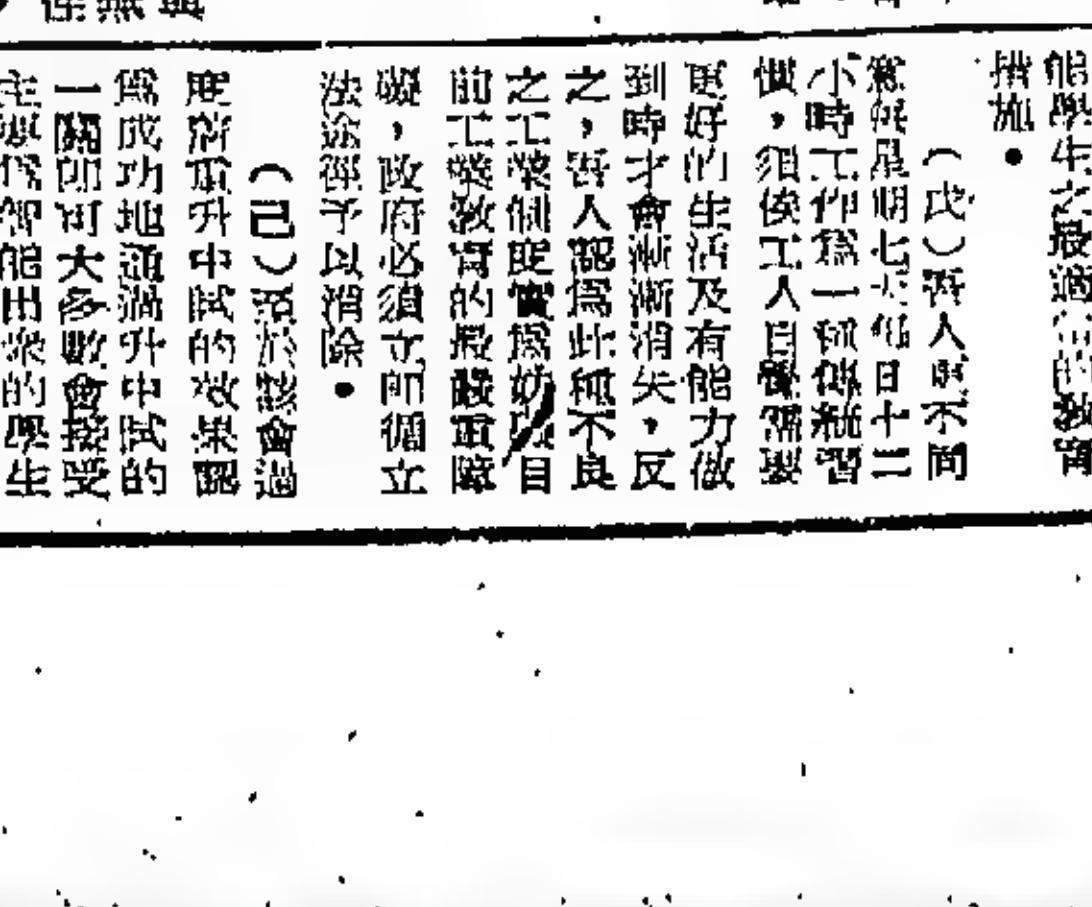 能學生之最適合的教育
措施。
（戊）吾人更不同
意每星期七天每日十二
小時工作爲一種傳統習
慣，須俟工人自覺需要
更好的生活及有能力做
到時才會漸漸消失，反
之，吾人認爲此種不良
之工業制度實爲妨礙目
前工業教育的最嚴重障
礙，政府必須立即循立
法途徑予以消除。
（己）至於該會過
度着重升中試的效果認
爲成功地通過升中試的
一關即可大多數會接受
的學生